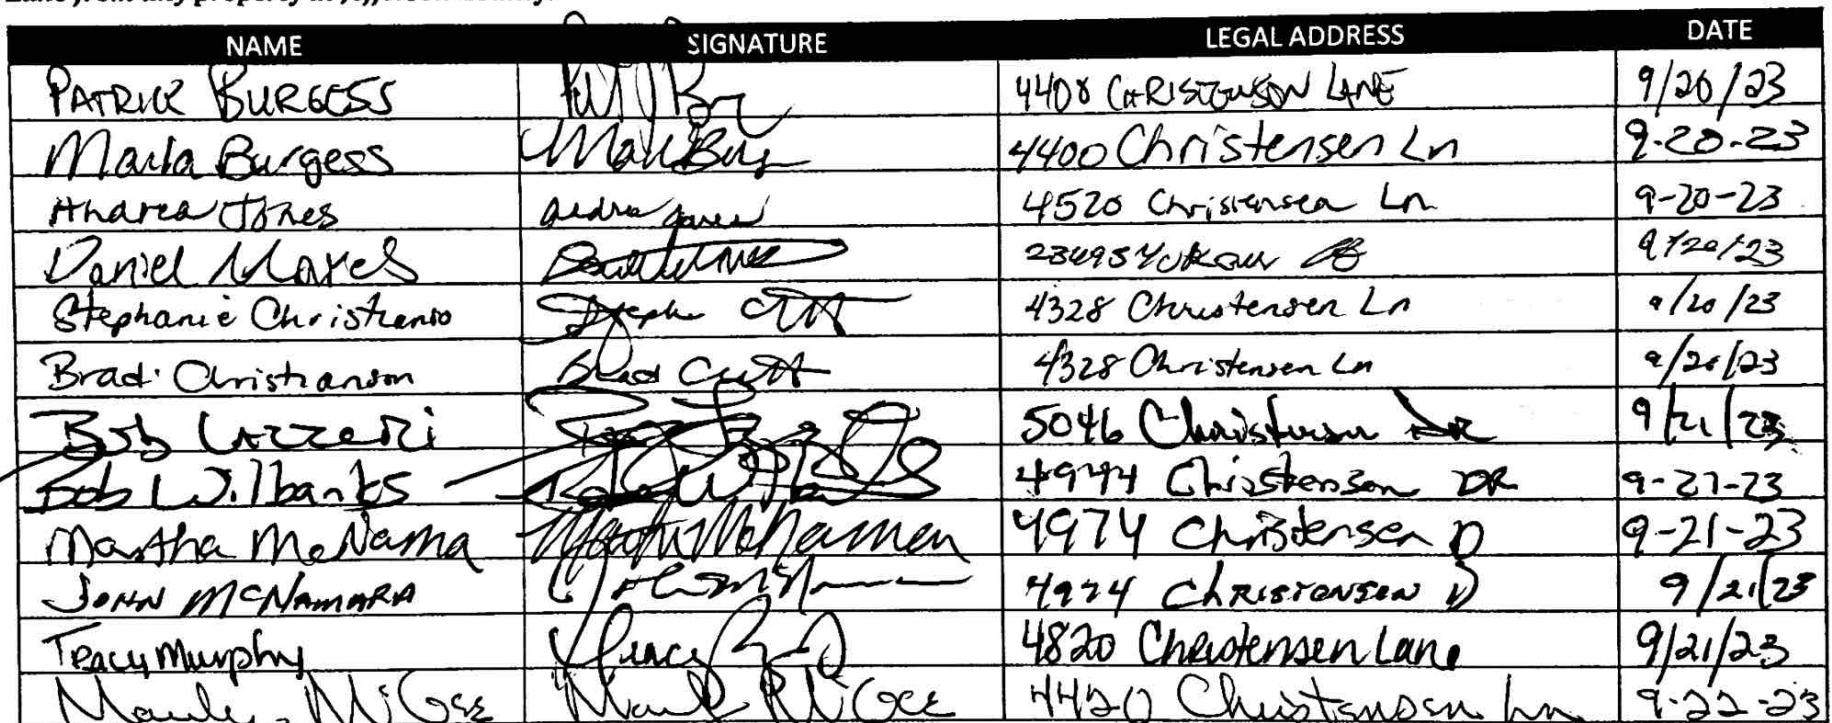 NAME SIGNATURE LEGAL ADDRESS DATE
PATRICK BURGESS 4408 CHRISTENSON LANE 9/20/23
Marla Burgess 4400 Christensen Ln 9-20-23
Andrea Jones Andrea Jones 4520 Christensen Ln 9-20-23
Daniel 9/20/23
Stephanie Christianso 4328 Christensen Ln 9/20/23
Brad Christianson Brad 4328 Christensen Ln 9/20/23
Bob 5046 Christensen DR 9/21/23
Bob Wilbanks Christensen DR
Martha McNama Martha McNamara 4974 Christensen D 9-21-23
JOHN MCNAMARA 4974 CHRISTENSEN D 9/21/23
Tracy Murphy Tracy 4820 Christensen Lane 9/21/23
McGee McGee 4420 Christensen Ln 9-22-23